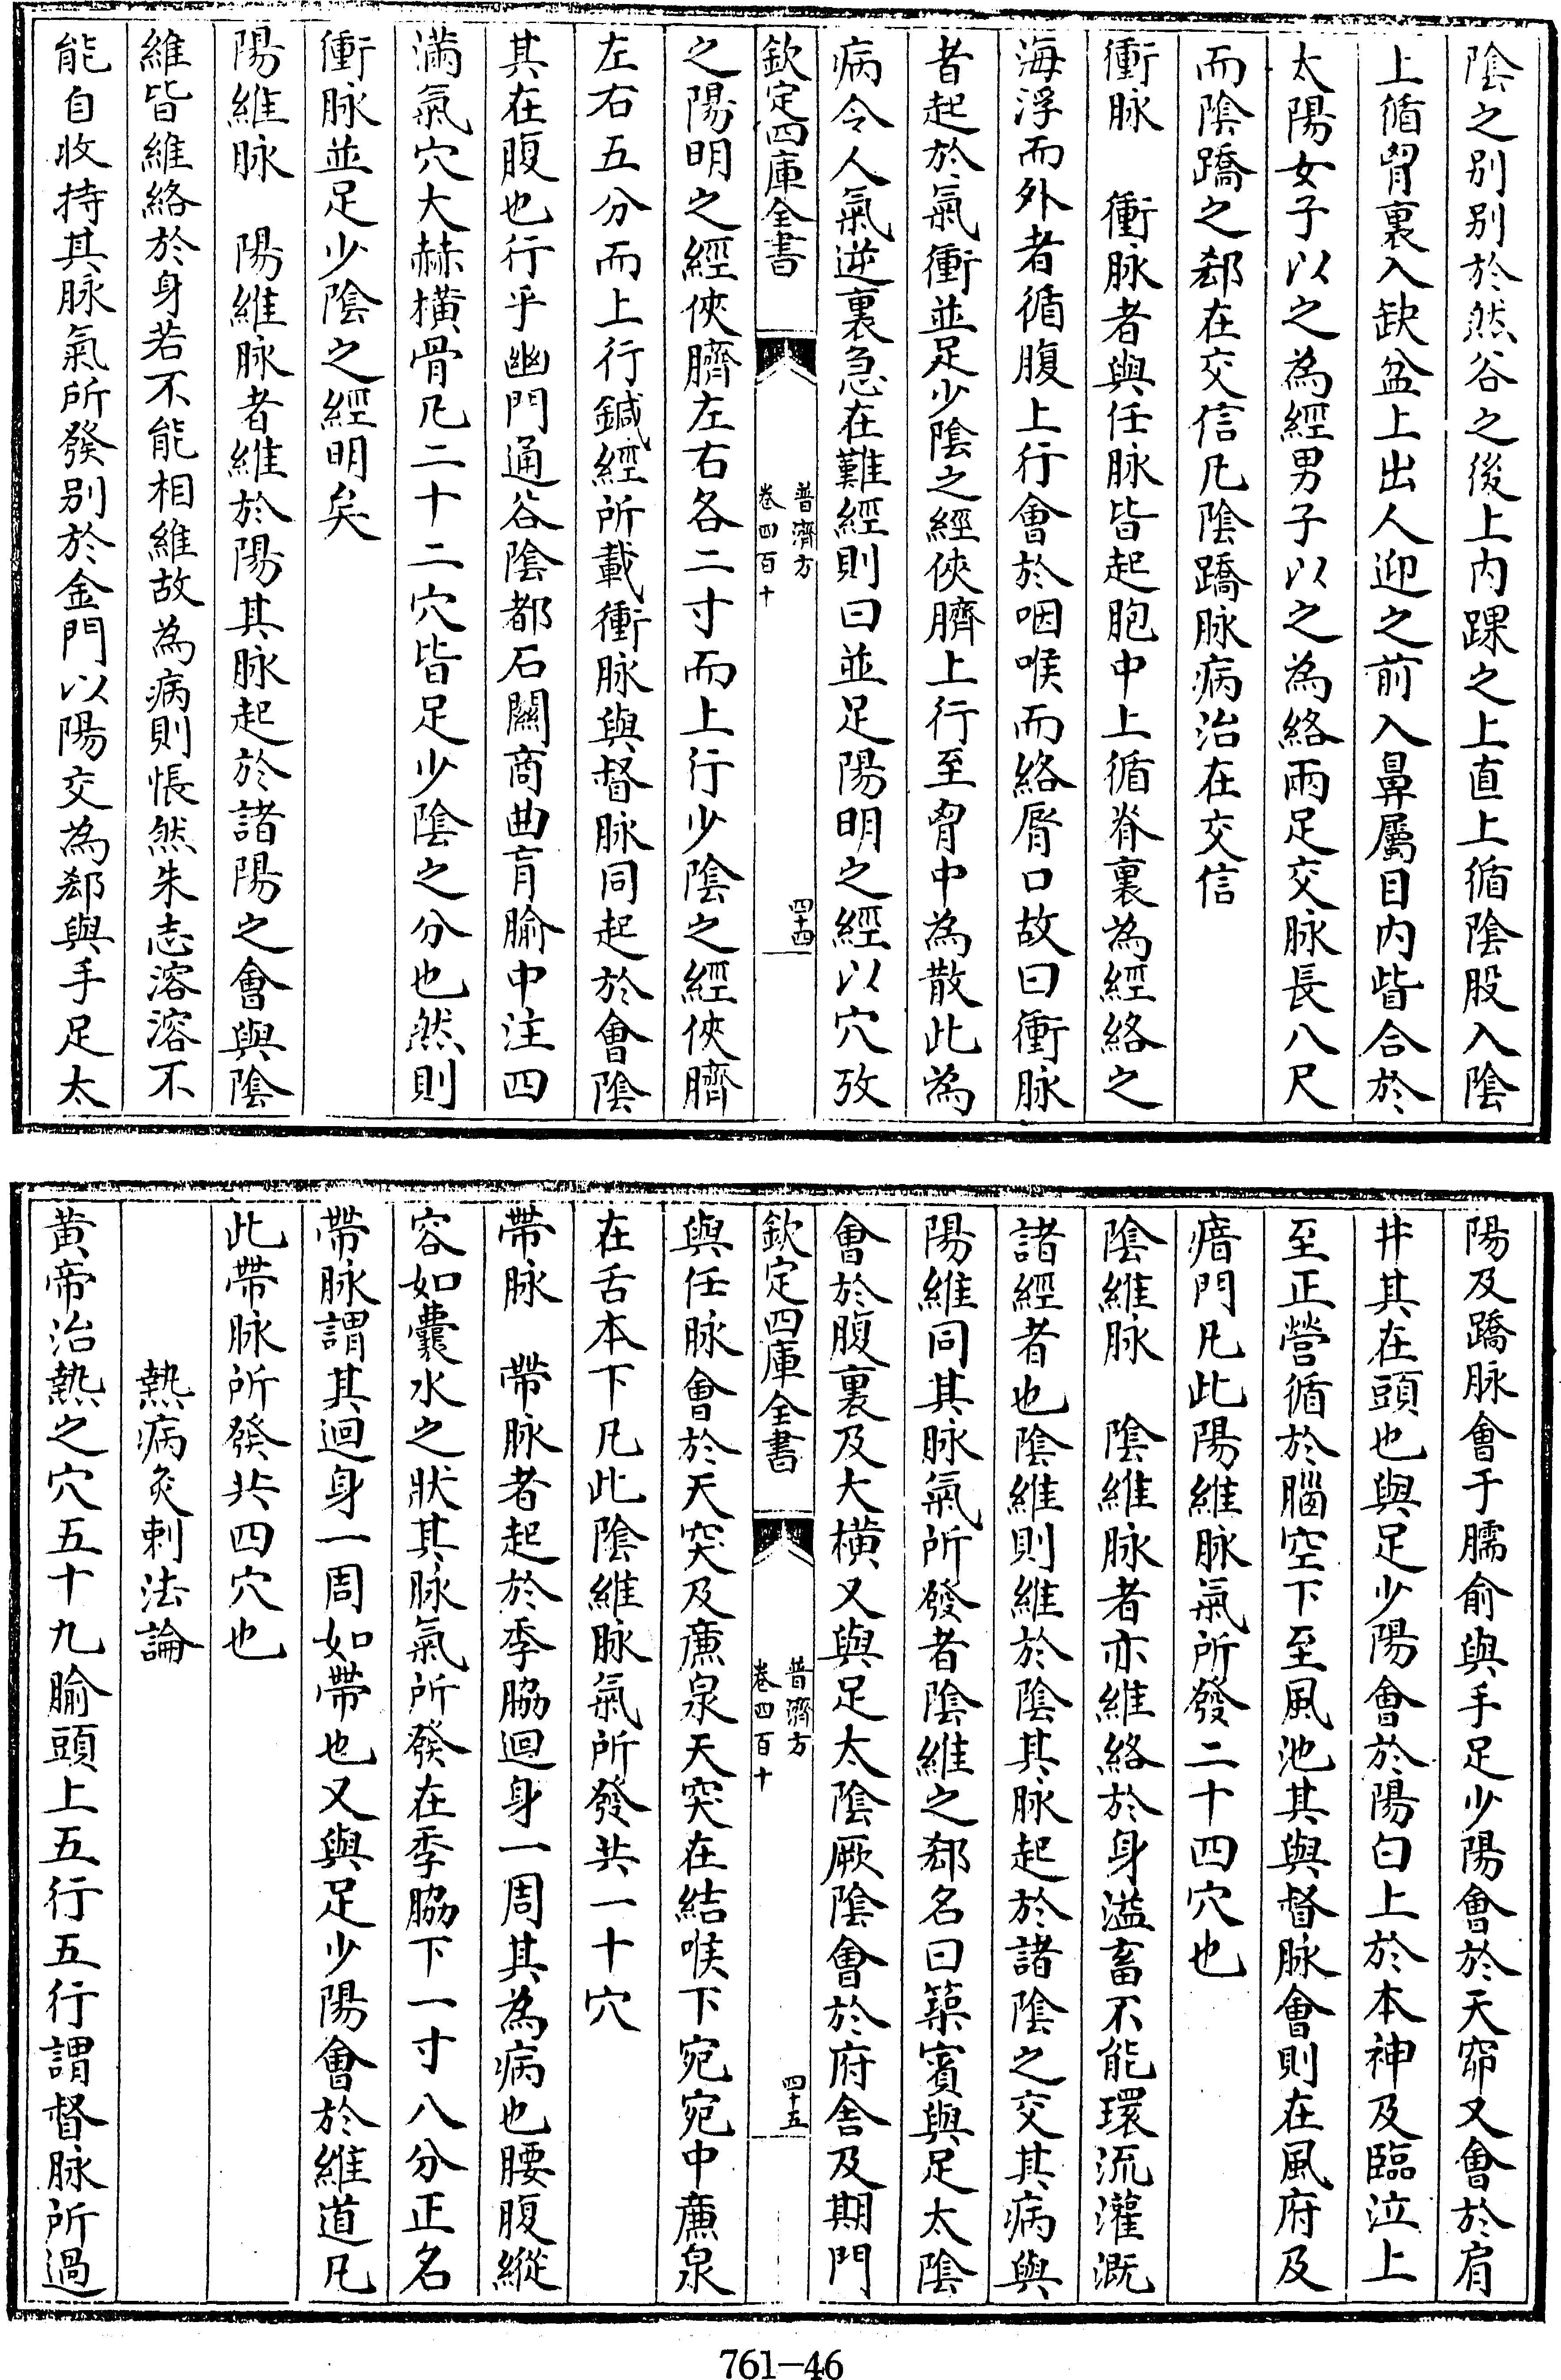 陰之别别於然谷之後上内踝之上直上循陰股入陰
上循胷裏入缺盆上出人迎之前入鼻屬目内眥合於
太陽女子以之為經男子以之為絡兩足交脉長八尺
而陰蹻之郄在交信凡陰蹻脉病治在交信
衝脉　衝脉者與任脉皆起胞中上循脊裏為經絡之
海浮而外者循腹上行會於咽喉而絡脣口故曰衝脉
者起於氣衝並足少陰之經俠臍上行至胷中為散此為
病令人氣逆裏急在難經則曰並足陽明之經以穴攷
欽定四庫全書
普濟方
卷四百十
四十四
之陽明之經俠臍左右各二寸而上行少陰之經俠臍
左右五分而上行鍼經所載衝脉與督脉同起於會陰
其在腹也行乎幽門通谷陰都石關商曲肓腧中注四
滿氣穴大赫橫骨凡二十二穴皆足少陰之分也然則
衝脉並足少陰之經明矣
陽維脉　陽維脉者維於陽其脉起於諸陽之會與陰
維皆維絡於身若不能相維故為病則悵然失志溶溶不
能自收持其脉氣所發别於金門以陽交為郄與手足太
陽及蹻脉會于臑俞與手足少陽會於天窌又會於肩
井其在頭也與足少陽會於陽白上於本神及臨泣上
至正營循於腦空下至風池其與督脉會則在風府及
瘖門凡此陽維脉氣所發二十四穴也
陰維脉　陰維脉者亦維絡於身溢畜不能環流灌溉
諸經者也陰維則維於陰其脉起於諸陰之交其病與
陽維同其脉氣所發者陰維之郄名曰築賓與足太陰
會於腹裏及大横又與足太陰厥陰會於府舍及期門
欽定四庫全書
普濟方
卷四百十
四十五
與任脉會於天突及廉泉天突在結喉下宛宛中廉泉
在舌本下凡此陰維脉氣所發共一十穴
帶脉　帶脉者起於季脇迴身一周其為病也腰腹縱
容如囊水之狀其脉氣所發在季脇下一寸八分正名
帶脉謂其迴身一周如帶也又與足少陽會於維道凡
此帶脉所發共四穴也
熱病灸刺法論
黄帝治熱之穴五十九腧頭上五行五行謂督脉所過
761-46